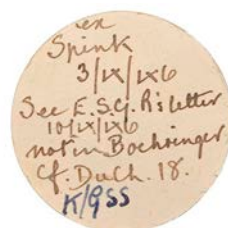 ex
Spink
3/ix/ix6
See E.S.G. R's letter
10/ix/ix6
not in Boehringer
Cf. Duch. 18.
K/9SS